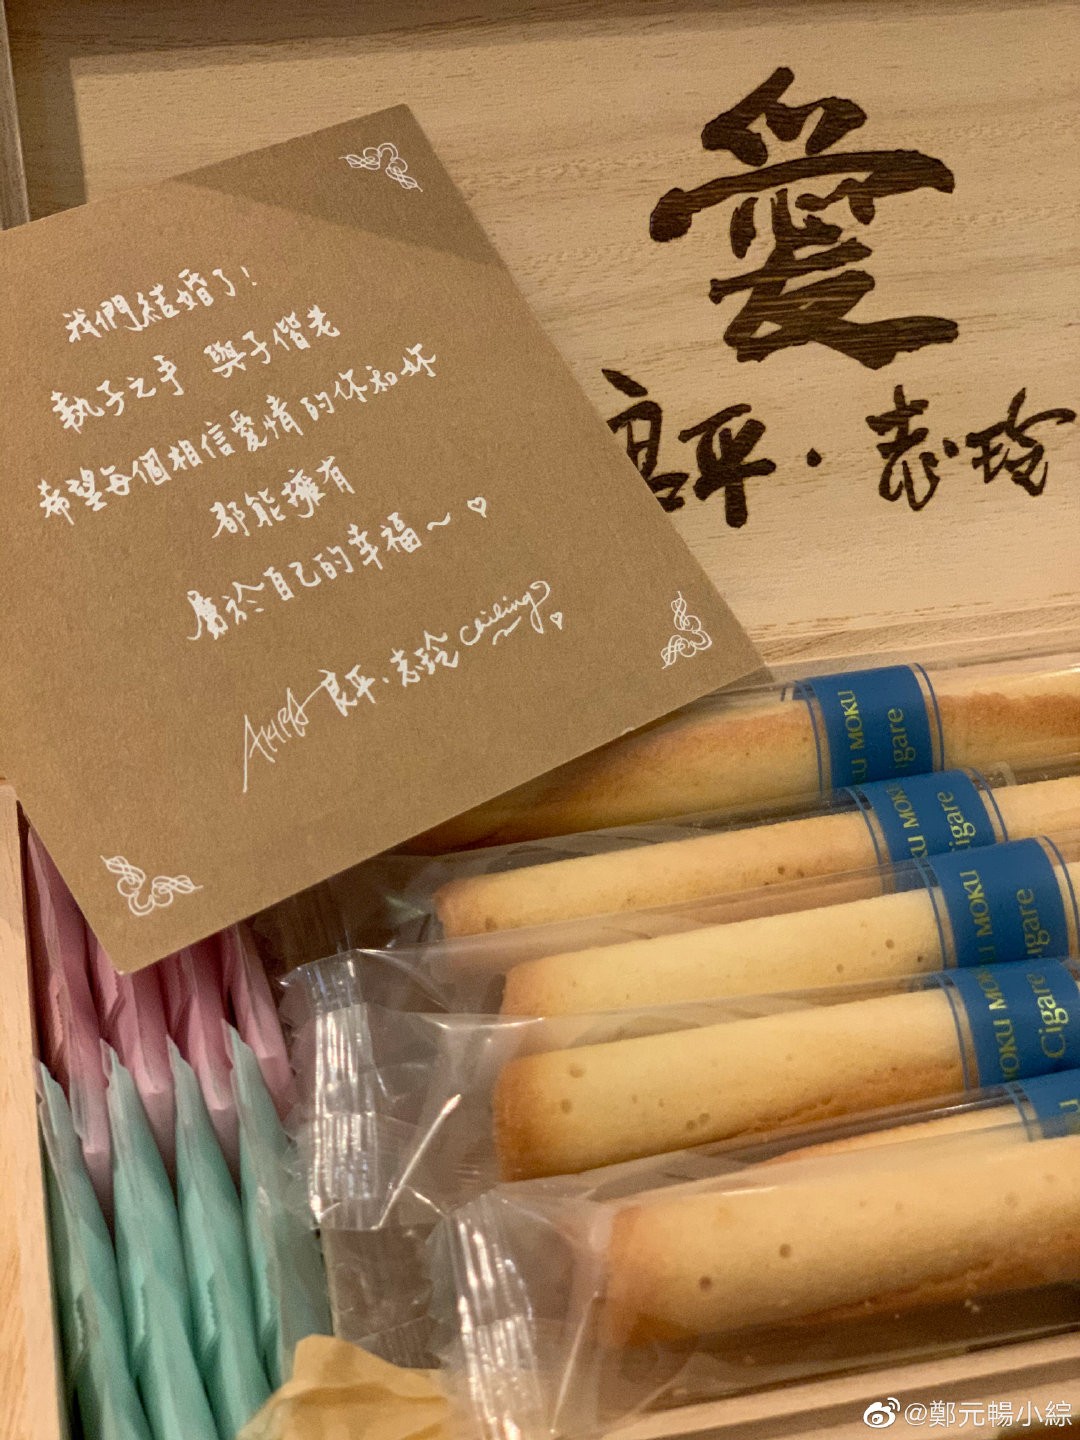 愛
良平·志玲
我們結婚了!
執子之手 與子偕老
希望每個相信愛情的你和妳
都能擁有
屬於自己的幸福~♡
AKIRA 良平·志玲 chiling ♡
KU MOKU
Cigare
KU MOKU
Cigare
KU MOKU
Cigare
MOKU MOKU
Cigare
@鄭元暢小綜